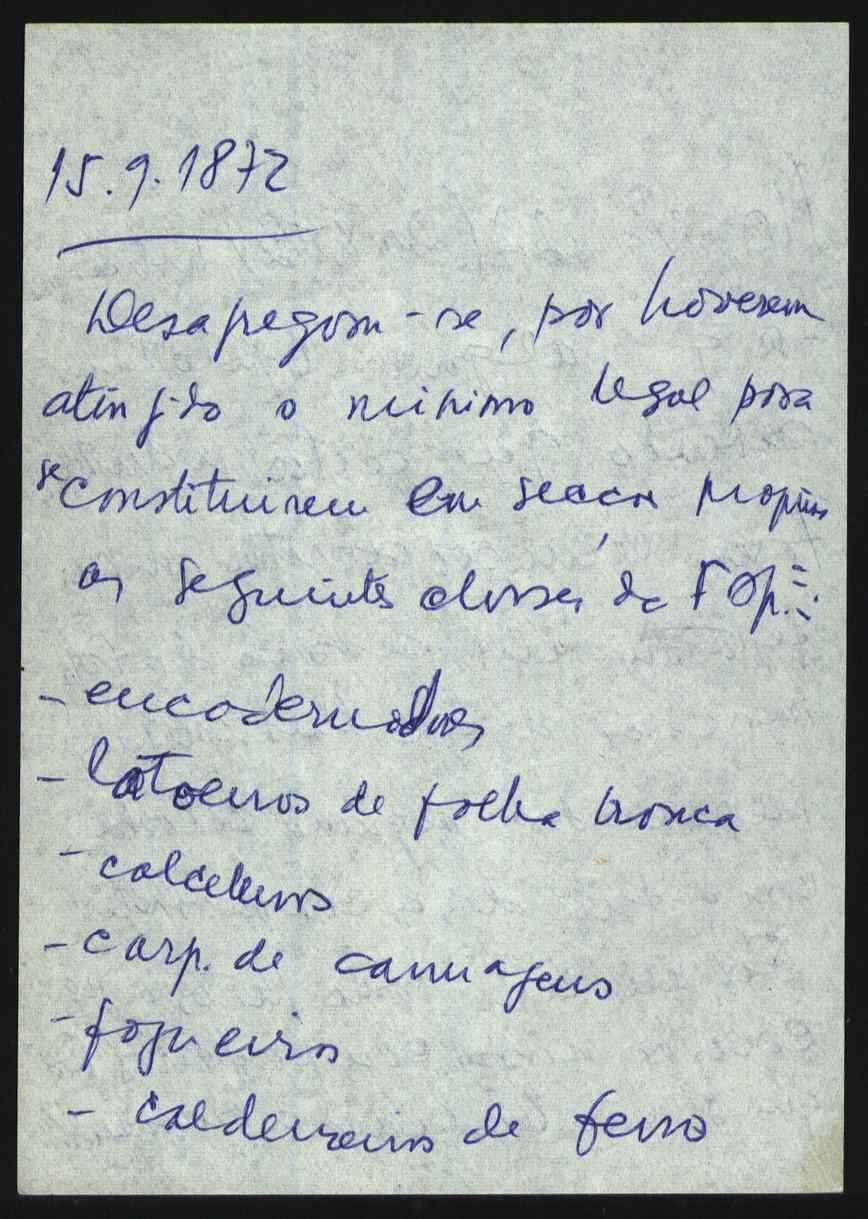 15.9.1872
Desapegam-se, por haverem
atingido o minimo legal para
se constituirem em secção propria
as seguintes classes da F. Op.:
- encadernadores
- latoeiros de folha branca
- calceteiros
- carp. de carruagens
- fogueiros
- caldeireiros de ferro